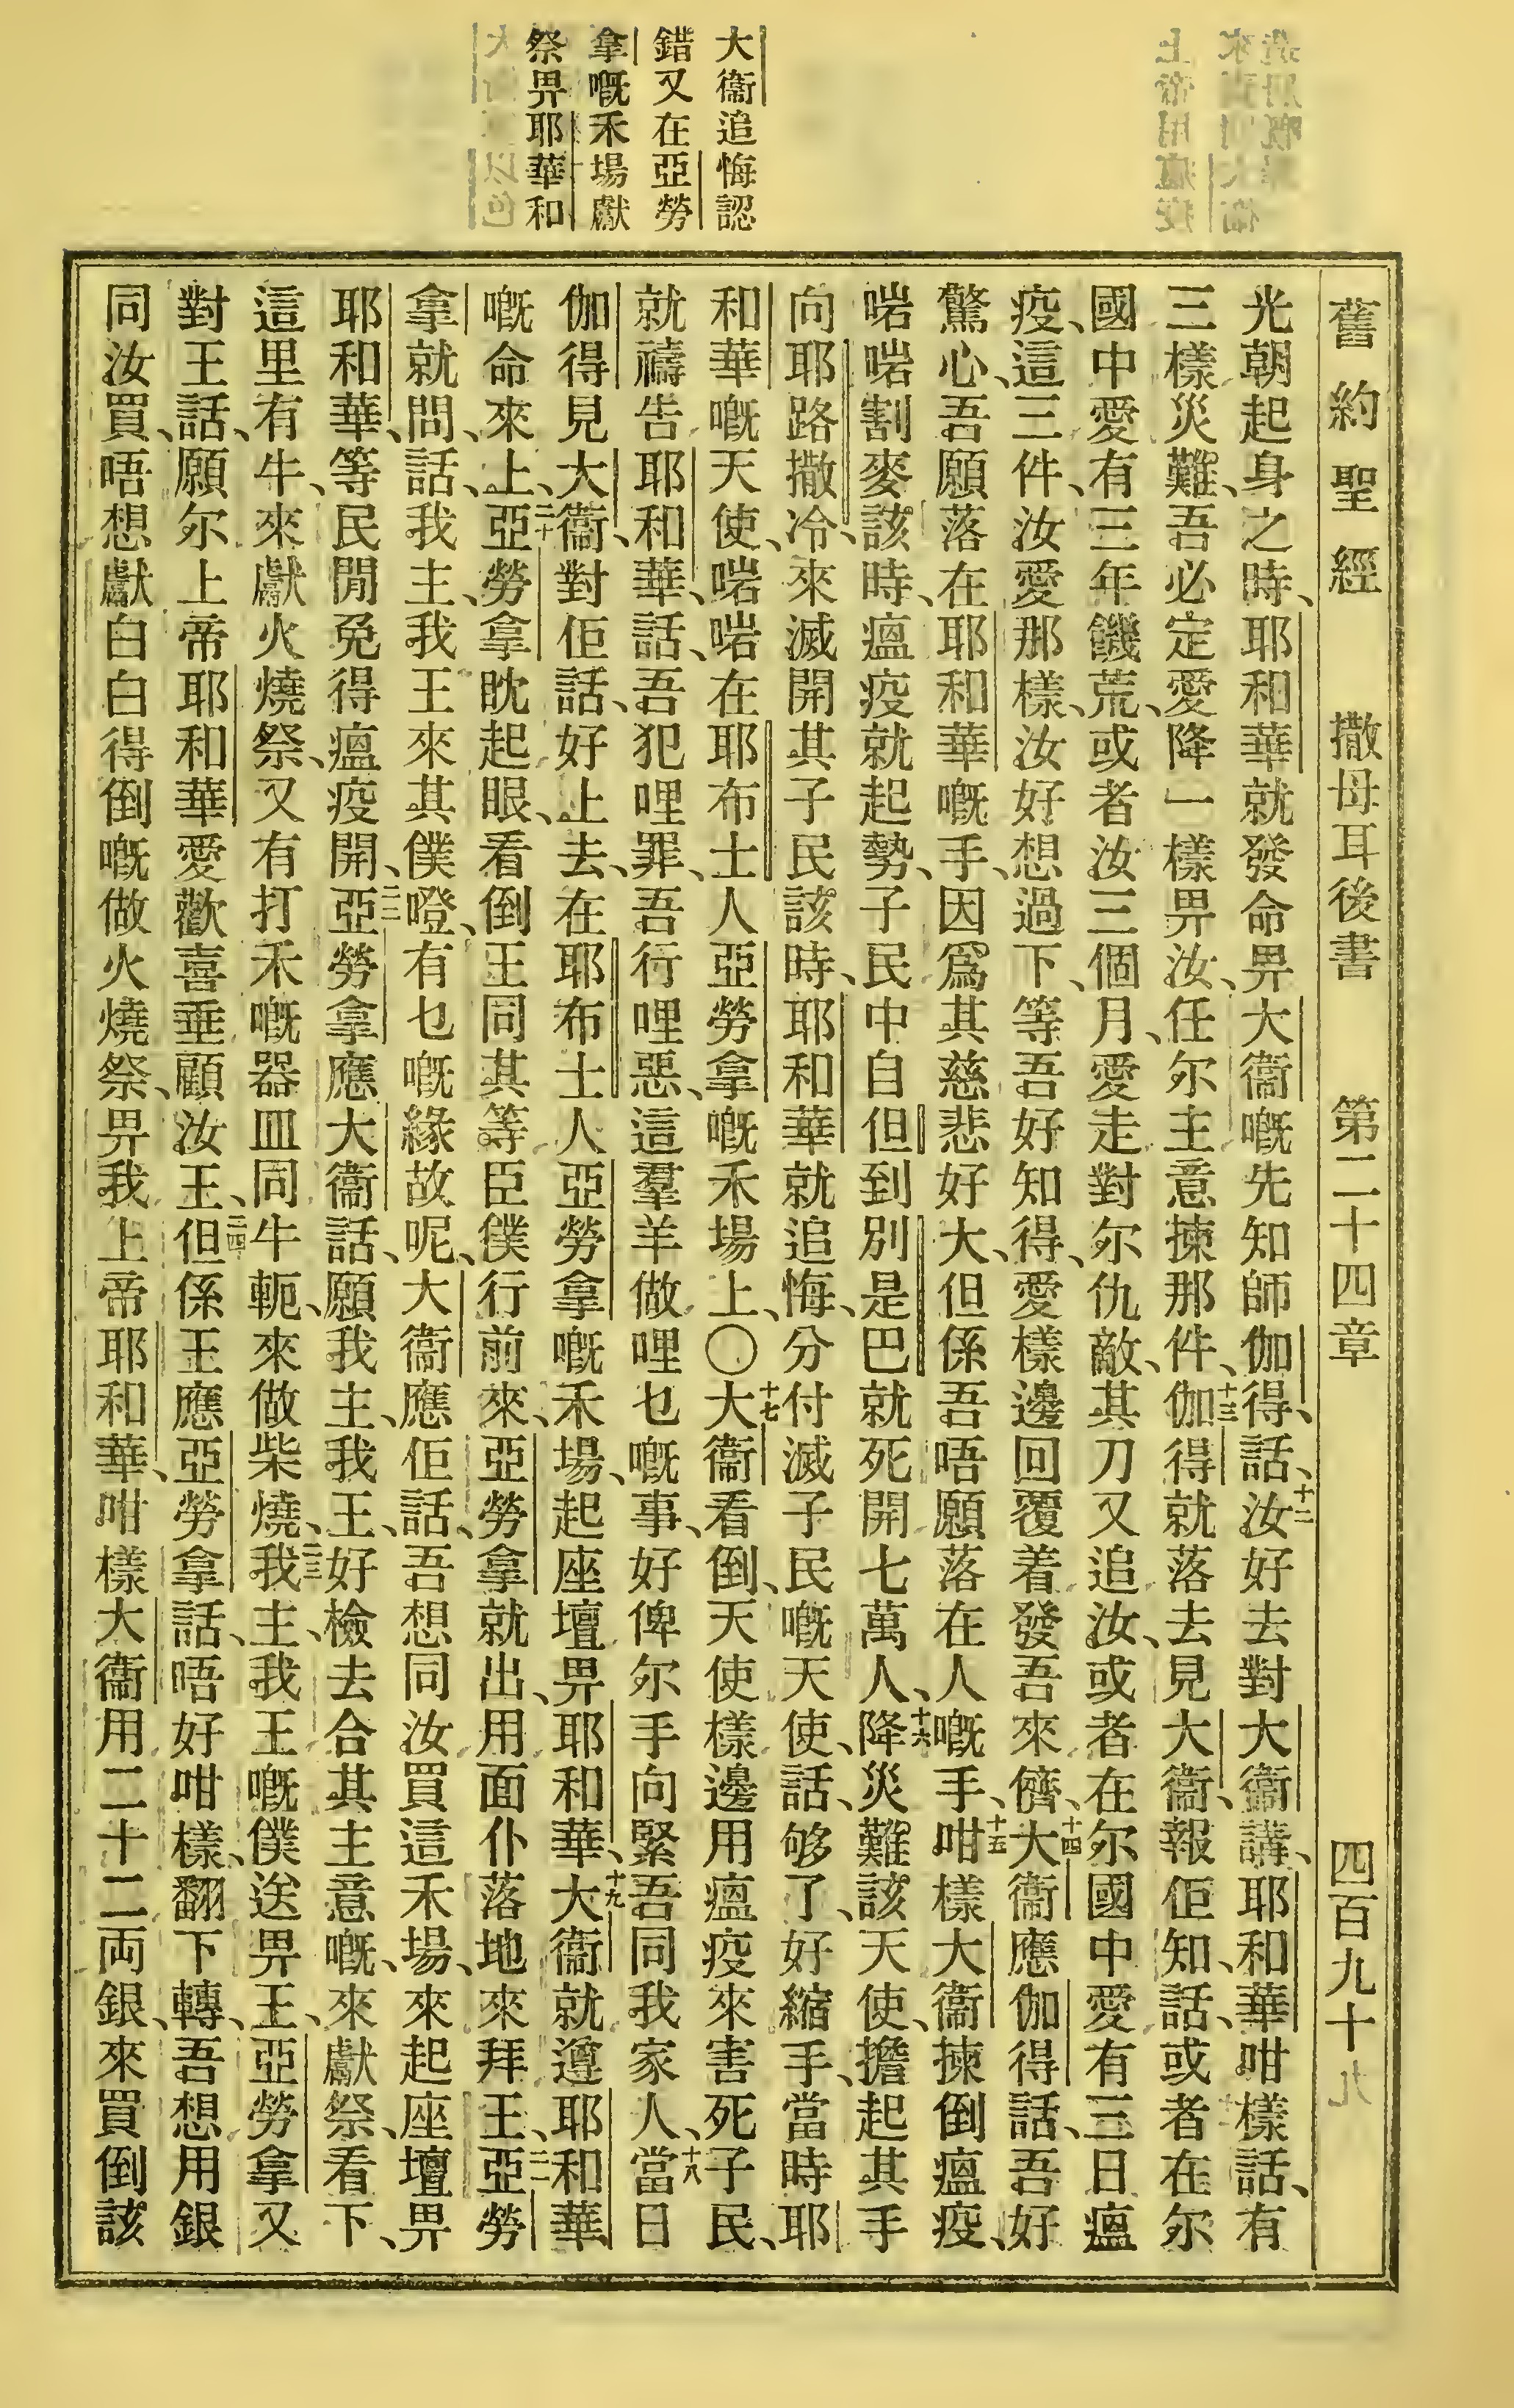 大衞追悔認
錯又在亞勞
拿嘅禾場獻
祭畀耶華和
舊約聖經 撒母耳後書 第二十四章 四百九十九
光朝起身之時、耶和華就發命畀大衞嘅先知師伽得、話、十二汝好去對大衞講、耶和華咁樣話、有
三樣災難、吾必定愛降一樣畀汝、任尔主意揀那件、十三伽得就落去見大衞、報佢知、話、或者在尔
國中愛有三年饑荒、或者汝三個月、愛走對尔仇敵、其刀又追汝、或者在尔國中愛有三日瘟
疫、這三件、汝愛那樣、汝好想過下、等吾好知得、愛樣邊回覆着發吾來儕、十四大衞應伽得話、吾好
驚心、吾願落在耶和華嘅手、因爲其慈悲好大、但係吾唔願落在人嘅手、十五咁樣大衞揀倒瘟疫、
啱啱割麥該時、瘟疫就起勢、子民中自但到別是巴就死開七萬人、十六降災難該天使、擔起其手
向耶路撒冷、來滅開其子民該時、耶和華就追悔、分付滅子民嘅天使、話、够了、好縮手、當時耶
和華嘅天使、啱啱在耶布士人亞勞拿嘅禾場上、〇十七大衞看倒、天使樣邊用瘟疫來害死子民、
就禱告耶和華、話、吾犯哩罪、吾行哩惡、這羣羊做哩乜嘅事、好俾尔手向緊吾同我家人、十八當日
伽得見大衞、對佢話、好上去、在耶布士人亞勞拿嘅禾場、起座壇畀耶和華、十九大衞就遵耶和華
嘅命來上、二十亞勞拿眈起眼、看倒王同其等臣僕行前來、亞勞拿就出、用面仆落地來拜王、二一亞勞
拿就問、話、我主、我王來其僕嶝、有乜嘅緣故呢、大衞應佢話、吾想同汝買這禾場、來起座壇畀
耶和華、等民間免得瘟疫開、二二亞勞拿應大衞話、願我主、我王、好檢去合其主意嘅、來獻祭、看下、
這里有牛、來獻火燒祭、又有打禾嘅器皿同牛軛、來做柴燒、二三我主、我王嘅僕送畀王、亞勞拿又
對王話、願尔上帝耶和華愛歡喜垂顧汝王、二四但係王應亞勞拿話、唔好咁樣、翻下轉、吾想用銀
同汝買、唔想獻白白得倒嘅做火燒祭、畀我上帝耶和華、咁樣大衞用二十二両銀、來買倒該